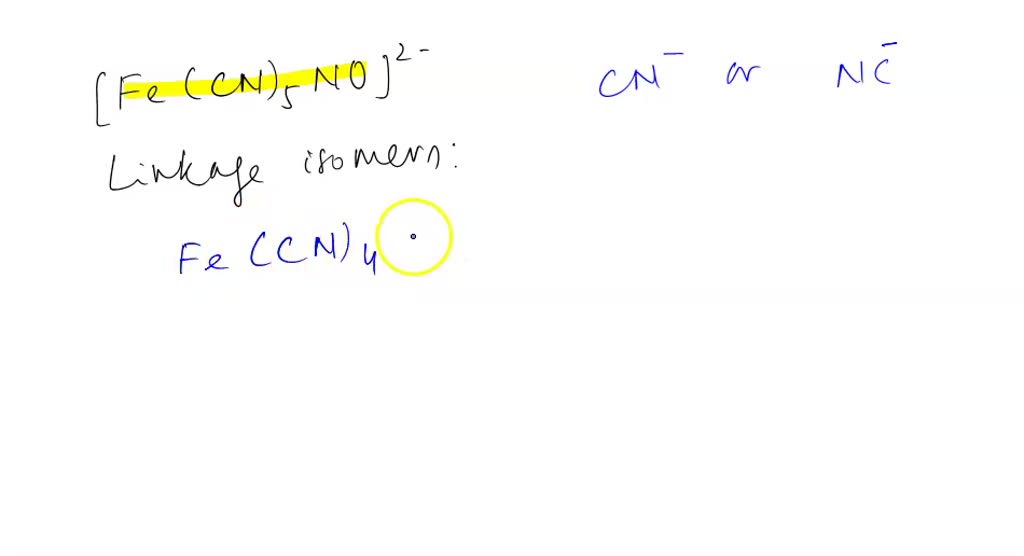 [Fe (CN)₅ NO]²⁻ CN⁻ or NC⁻
Linkage isomers:
Fe (CN)₄